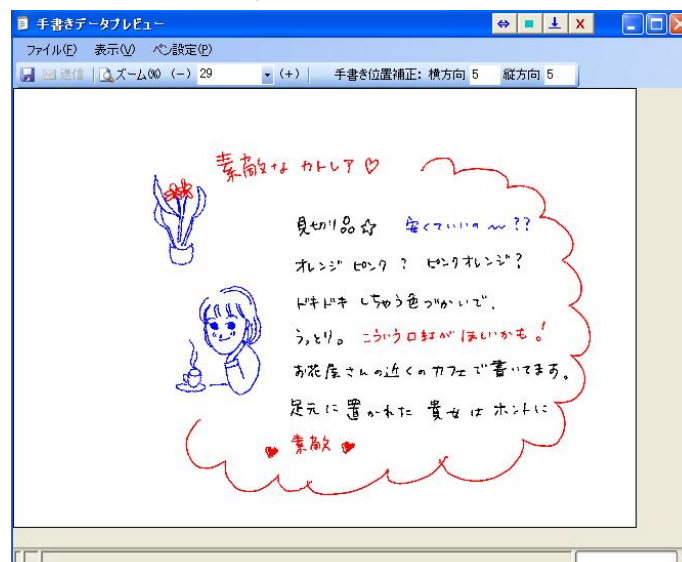 手書きデータプレビュー
ファイル(F) 表示(V) ペン設定(P)
送信 ズーム(%) (-) 29 (+) 手書き位置補正: 横方向 5 縦方向 5
素敵な カトレア♡
見切り品☆ 安くていいの〜??
オレンジ ピンク ? ピンクオレンジ?
ドキドキ しちゃう色づかいで、
うっとり。こういう口紅がほしいかも!
お花屋さんの近くのカフェで書いてます。
足元に置かれた 貴女は ホントに
♥ 素敵 ♥